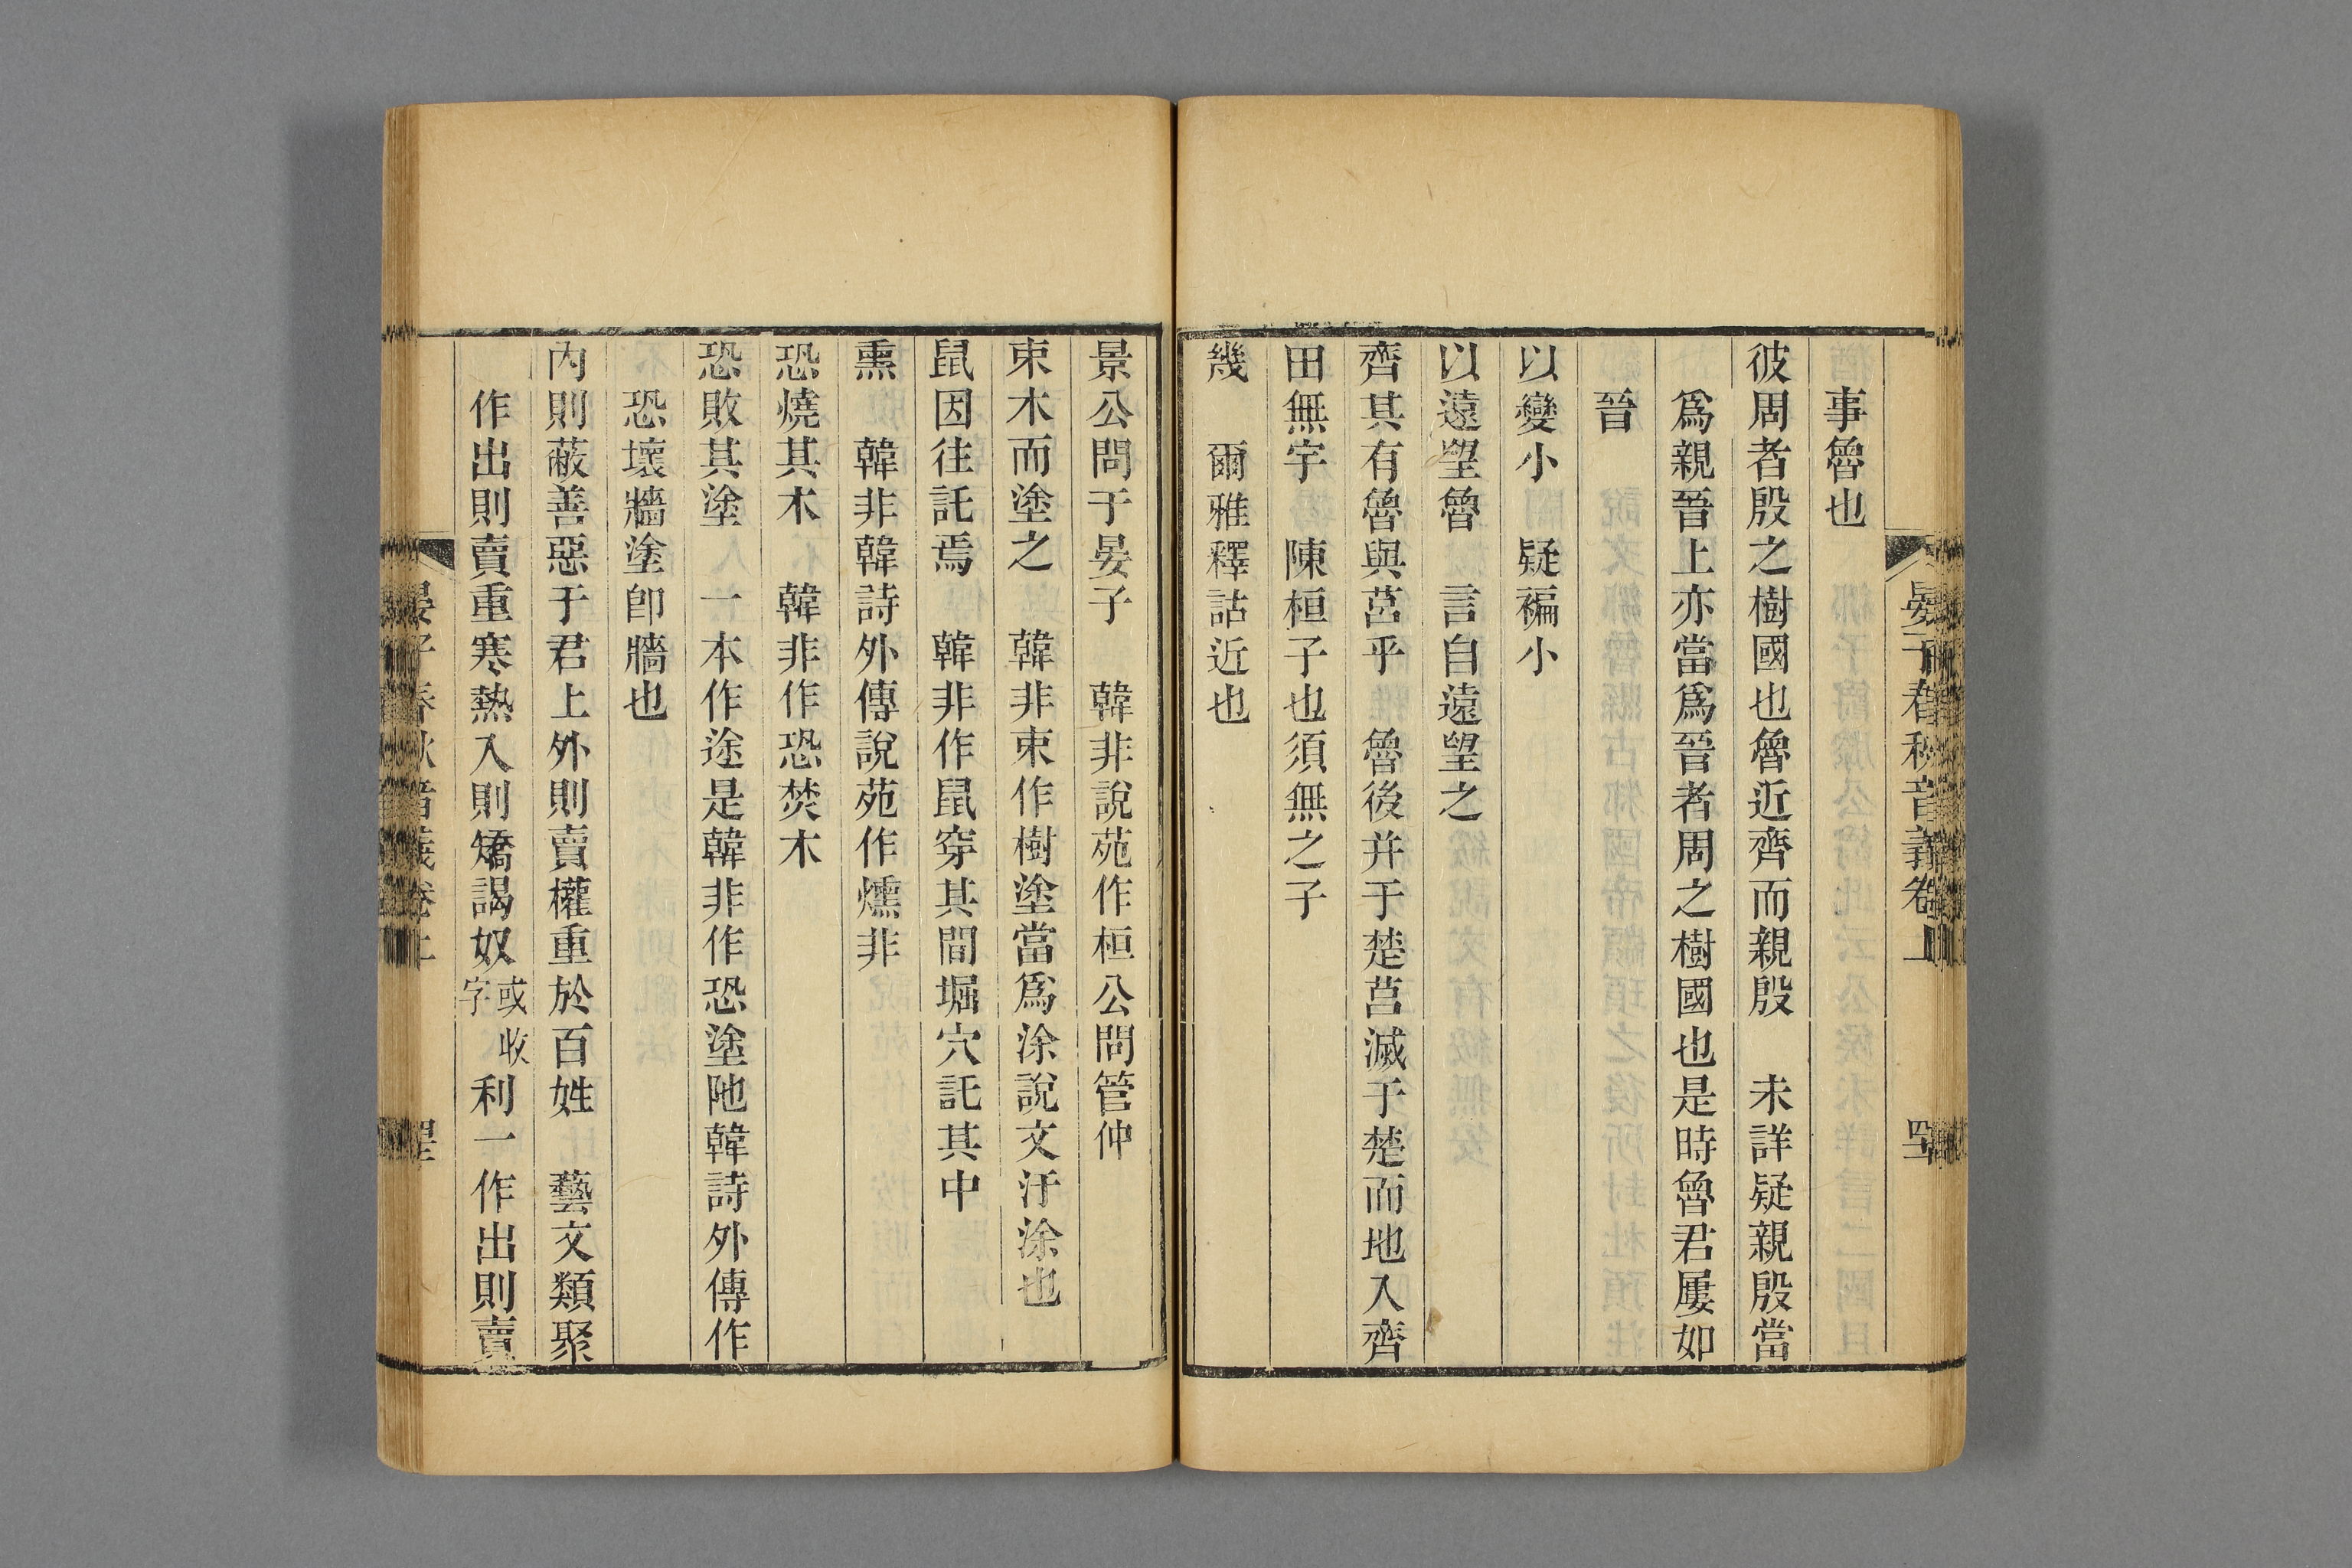 事魯也
彼周者殷之樹國也魯近齊而親殷　未詳疑親殷當
爲親晉上亦當爲晉者周之樹國也是時魯君屢如
晉
以變小　疑褊小
以遠望魯　言自遠望之
齊其有魯與莒乎　魯後并于楚莒滅于楚而地入齊
田無宇　陳桓子也須無之子
幾　爾雅釋詁近也
景公問于晏子　韓非說苑作桓公問管仲
束木而塗之　韓非束作樹塗當爲涂說文汙涂也
鼠因往託焉　韓非作鼠穿其間堀穴託其中
熏　韓非韓詩外傳說苑作燻非
恐燒其木　韓非作恐焚木
恐敗其塗　一本作途是韓非作恐塗阤韓詩外傳作
恐壞牆塗卽牆也
內則蔽善惡于君上外則賣權重於百姓　藝文類聚
作出則賣重寒熱入則矯謁奴或收字利一作出則賣
晏子春秋音義卷上